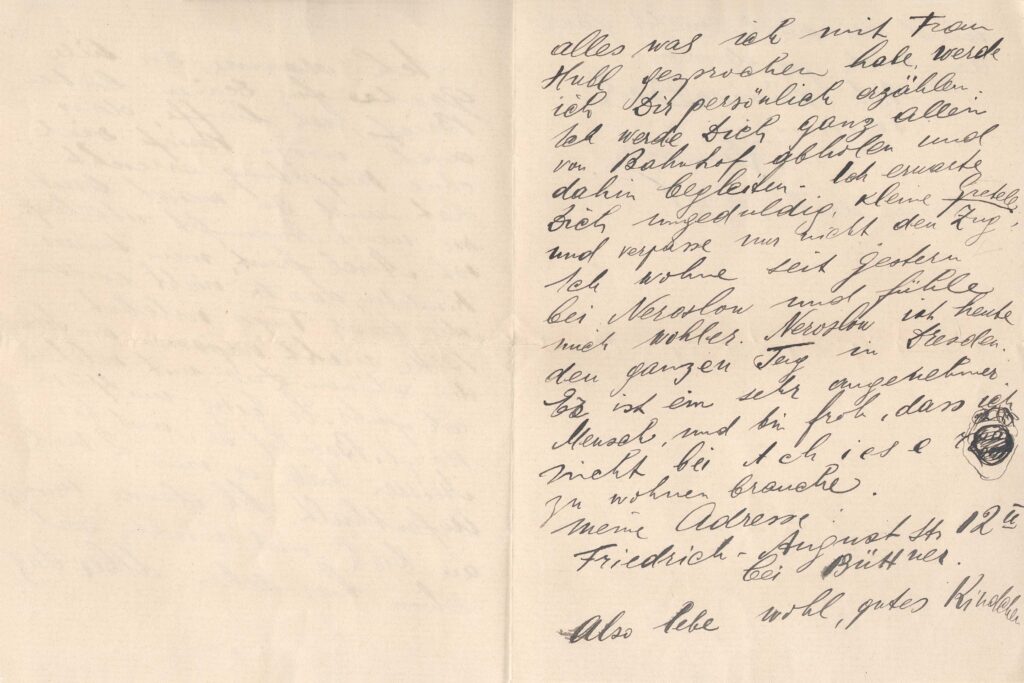 alles was ich mit Frau
Hubl gesprochen habe, werde
ich Dir persönlich erzählen.
Ich werde Dich ganz allein
von Bahnhof abholen und
dahin begleiten. Ich erwarte
Dich ungeduldig, kleine Gretele,
und verpasse nur nicht den Zug.
Ich wohne seit gestern
bei Neroslow und fühle
mich wohler. Neroslow ist heute
den ganzen Tag in Dresden.
Er ist ein sehr angenehmer
Mensch, und bin froh, dass ich
nicht bei
zu wohnen brauche.
meine Adresse:
Friedrich-August str 12 II
bei Büttner.
Also lebe wohl, gutes Kindchen